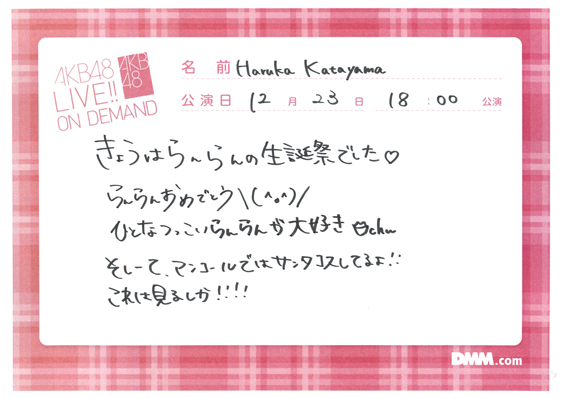 AKB48
LIVE!!
ON DEMAND
AKB
48
名 前 Haruka Katayama
公演日 12 月 23 日 18 : 00 公演
きょうはらんらんの生誕祭でした♡
らんらんおめでとう\(^o^)/
ひとなつっこいらんらんが大好き chu
そしーて、アンコールではサンタコスしてるよ!!
これは見るしか!!!!
DMM.com